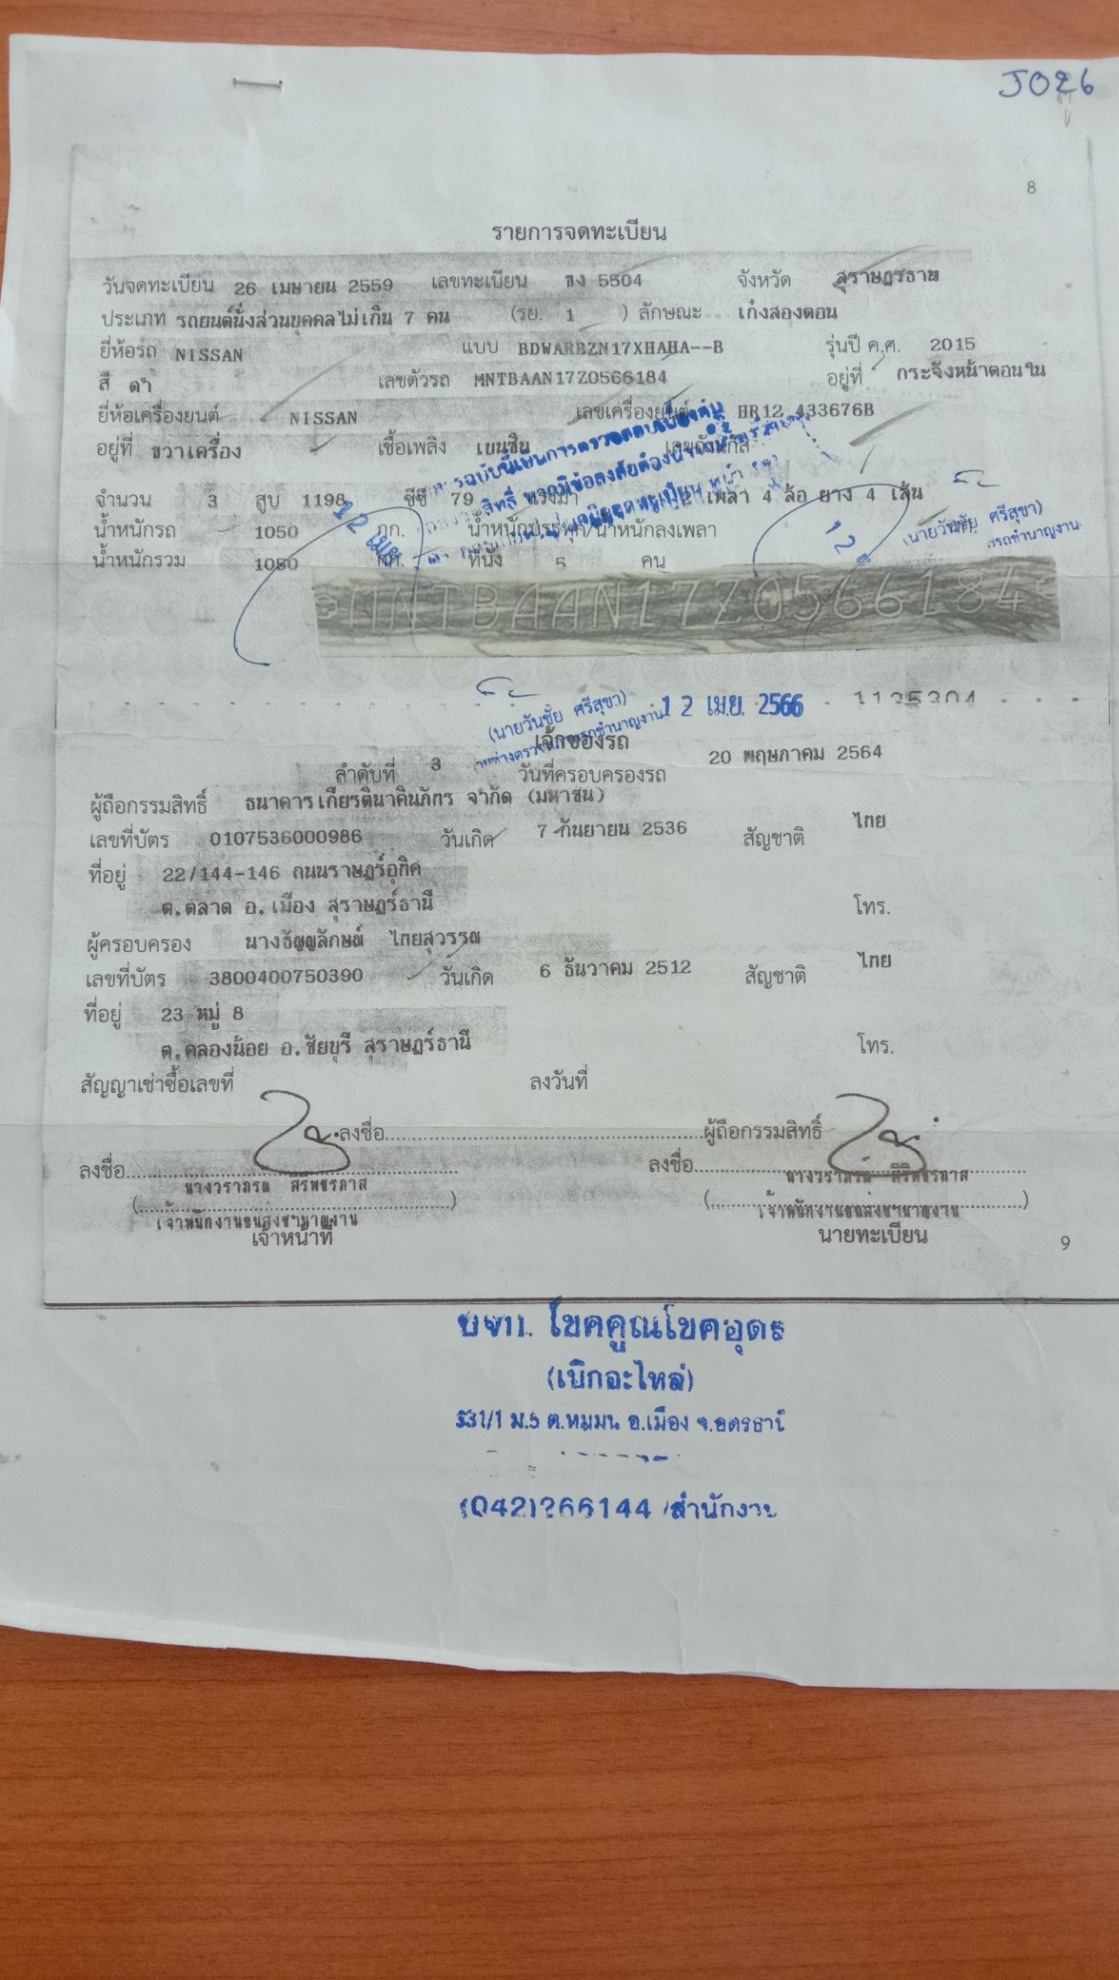 J026
8
รายการจดทะเบียน
วันจดทะเบียน 26 เมษายน 2559 เลขทะเบียน ขง 5504 จังหวัด สุราษฎร์ธานี
ประเภท รถยนต์นั่งส่วนบุคคลไม่เกิน 7 คน (รย. 1 ) ลักษณะ เก๋งสองตอน
ยี่ห้อรถ NISSAN แบบ BDWARBZN17XHAHA--B รุ่นปี ค.ศ. 2015
สี ดำ เลขตัวรถ MNTBAAN17Z0566184 อยู่ที่ กระจังหน้าตอนใน
ยี่ห้อเครื่องยนต์ NISSAN เลขเครื่องยนต์ HR12 433676B
อยู่ที่ ขวาเครื่อง เชื้อเพลิง เบนซิน เลขถังแก๊ส
จำนวน 3 สูบ 1198 ซีซี 79 แรงม้า 2 เพลา 4 ล้อ ยาง 4 เส้น
น้ำหนักรถ 1050 กก. น้ำหนักบรรทุก/น้ำหนักลงเพลา
น้ำหนักรวม 1050 กก. ที่นั่ง 5 คน
(นายวันชัย ศรีสุขา)
MNTBAAN17Z0566184
(นายวันชัย ศรีสุขา)
12 เม.ย. 2566
เจ้าของรถ
ลำดับที่ 3 วันที่ครอบครองรถ 20 พฤษภาคม 2564
ผู้ถือกรรมสิทธิ์ ธนาคารเกียรตินาคินภัทร จำกัด (มหาชน)
เลขที่บัตร 0107536000986 วันเกิด 7 กันยายน 2536 สัญชาติ ไทย
ที่อยู่ 22/144-146 ถนนราษฎร์อุทิศ
ต.ตลาด อ.เมือง สุราษฎร์ธานี โทร.
ผู้ครอบครอง นางธัญญลักษณ์ ไทยสุวรรณ
เลขที่บัตร 3800400750390 วันเกิด 6 ธันวาคม 2512 สัญชาติ ไทย
ที่อยู่ 23 หมู่ 8
ต.คลองน้อย อ.ชัยบุรี สุราษฎร์ธานี โทร.
สัญญาเช่าซื้อเลขที่ ลงวันที่
ลงชื่อ ผู้ถือกรรมสิทธิ์
ลงชื่อ ลงชื่อ
นางวราภรณ์ สิริพชรภาส นางวราภรณ์ สิริพชรภาส
เจ้าพนักงานขนส่งชำนาญงาน เจ้าพนักงานขนส่งชำนาญงาน
เจ้าหน้าที่ นายทะเบียน
9
บจก. โชคคูณโชคอุดร
(เบิกอะไหล่)
531/1 ม.5 ต.หมูม่น อ.เมือง จ.อุดรธานี
(042)266144 /สำนักงาน